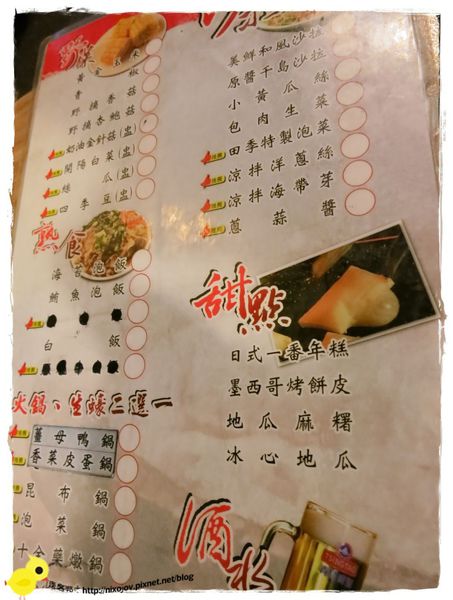 野菜
黃金玉米
青椒
野摘香菇
野摘杏鮑菇
奶油金針菇(盅)
開陽白菜(盅)
絲瓜(盅)
四季豆(盅)
熟食
海苔泡飯
鮪魚泡飯
白飯
火鍋、生蠔二選一
薑母鴨鍋
香菜皮蛋鍋
昆布鍋
泡菜鍋
十全藥燉鍋
美鮮和風沙拉
原醬千島沙拉
小黃瓜絲
包肉生菜
田季特製泡菜
涼拌洋蔥絲
涼拌海帶芽
蔥蒜醬
甜點
日式一番年糕
墨西哥烤餅皮
地瓜麻糬
冰心地瓜
酒水
http://nixojov.pixnet.net/blog